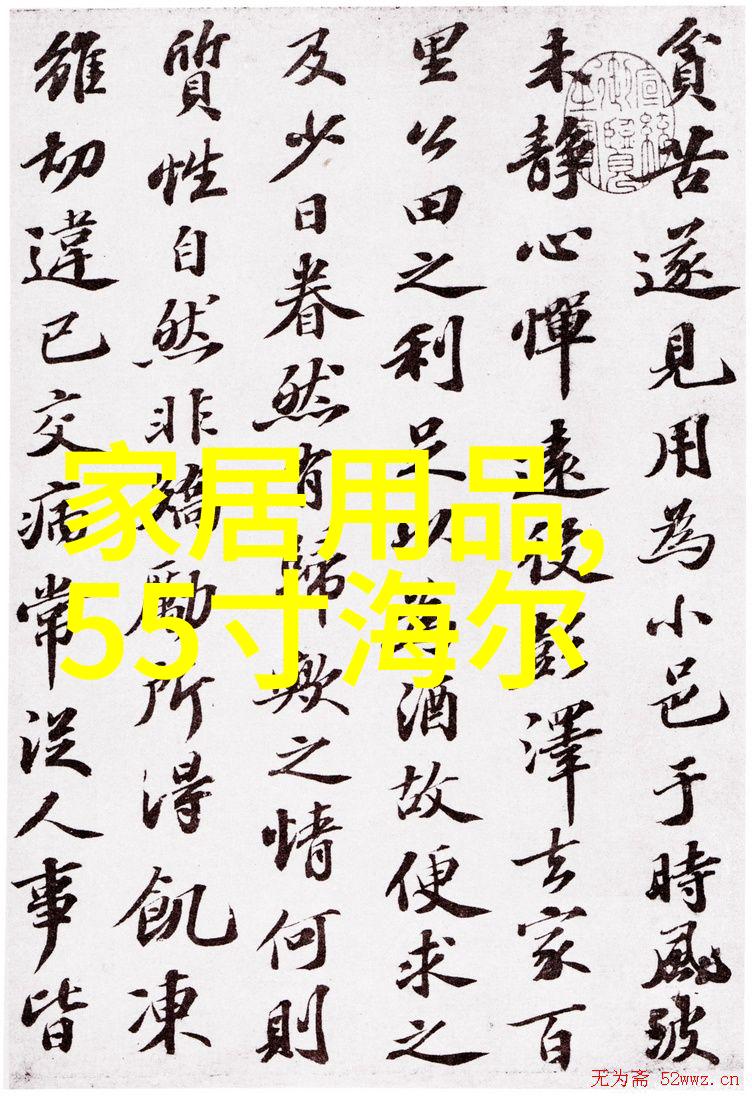 貧苦遂見用為小邑于時風波
未靜心憚遠役彭澤去家百
里公田之利足以為酒故便求之
及少日眷然有歸歟之情何則
質性自然非矯勵所得飢凍
雖切違已交病常從人事皆
家居用品,
55寸海尔
无为斋 52wwz.cn